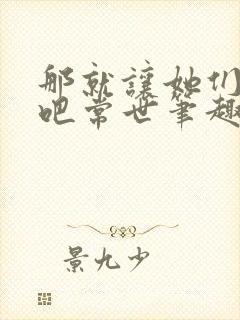 那就讓她们
吧常世笔趣
景九少